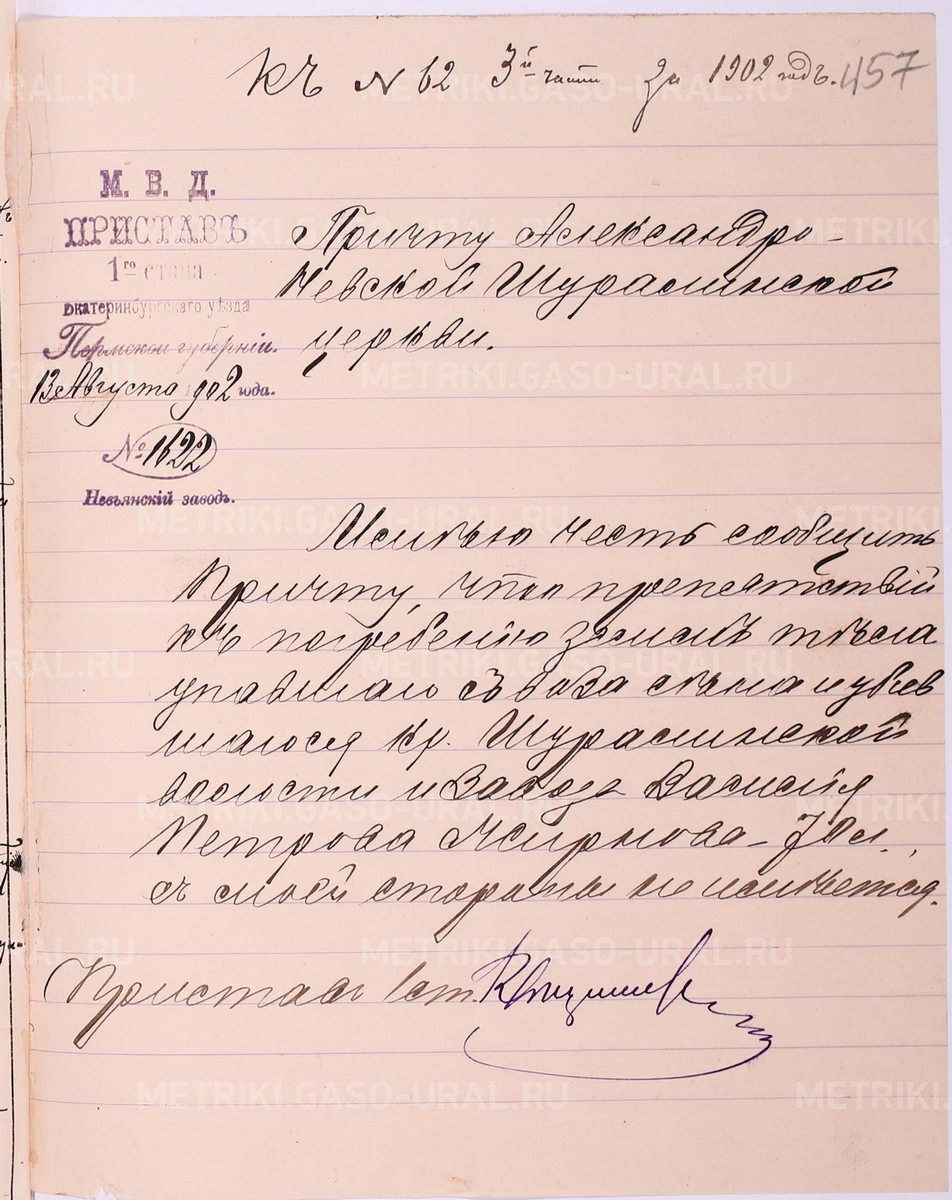 Къ № 62 3й части за 1902 годъ. 457
М. В. Д.
ПРИСТАВЪ
1го стана
Екатеринбургскаго уѣзда
Пермской губерніи.
13 Августа 1902 года.
№ 1622
Невьянскій заводъ.
Причту Александро-
Невской Шуралинской
церкви.
Имѣю честь сообщить
Причту, что препятствій
къ погребенію земли тѣла
упавшаго съ воза сѣна и убив
шагося кр. Шуралинской
волости и завода Василія
Петрова Жирнова
съ моей стороны не имѣется.
Приставъ 1 ст.
METRIKI.GASO-URAL.RU